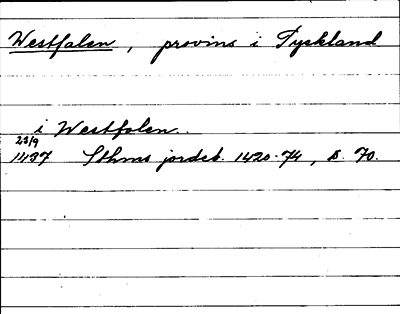 Westfalen, provins i Tyskland
i Westfalen.
23/9
1437 Sthms jordeb. 1420-74, s. 70.